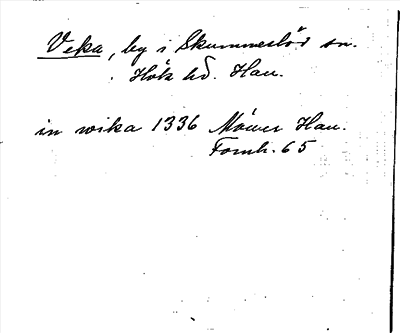 Veka, by i Skummeslöv sn.
Hök hd. Hall.
in wika 1336 Möller Hall.
Fornh. 65